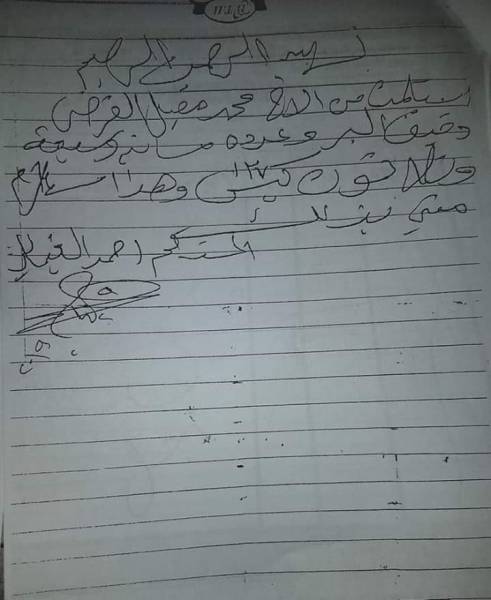 بسم الله الرحمن الرحيم
استلمت من الاخ محمد مقبل القرضي
دقيق البر وعدده مائه وسبعة
وثلاثون ١٣٧ كيس وهذا استلام
مني بذلك
المستلم احمد